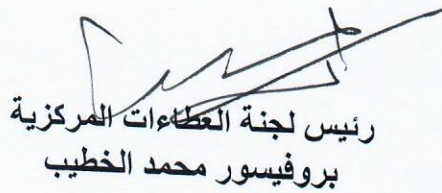 رئيس لجنة العطاءات المركزية
بروفيسور محمد الخطيب